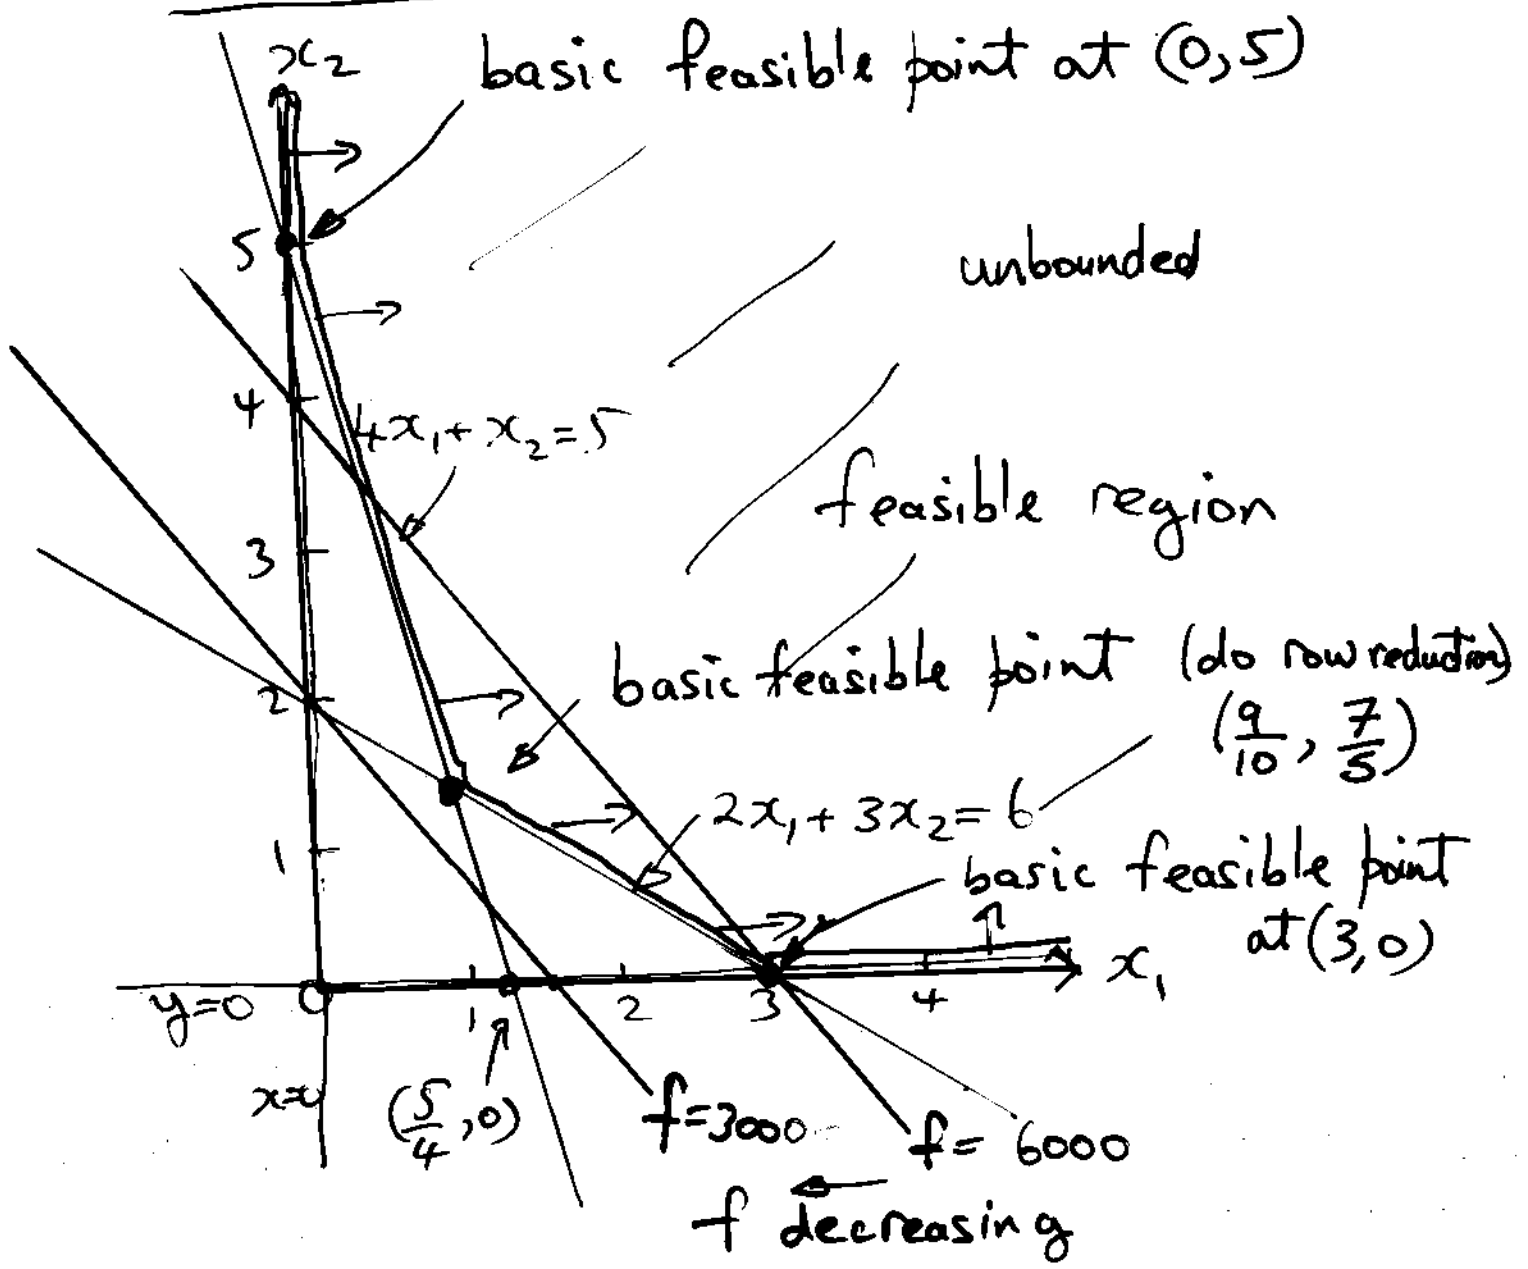 x₂
basic feasible point at (0,5)
5
unbounded
4
4x₁+x₂=5
feasible region
3
basic feasible point (do row reduction)
(9/10, 7/5)
2
2x₁+3x₂=6
1
basic feasible point
at (3,0)
x₁
y=0
0
1
2
3
4
x=0
(5/4,0)
f=3000
f=6000
f decreasing